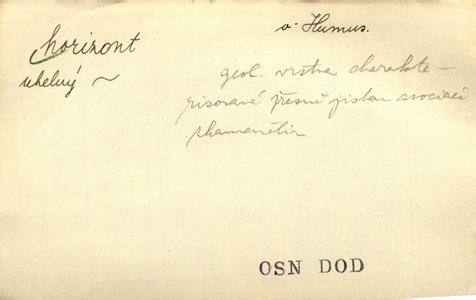 horizont
v. Humus.
uhelný ~
geol. vrstva charakte-
risované přesně jistou asociací
zkamenělin
OSN DOD